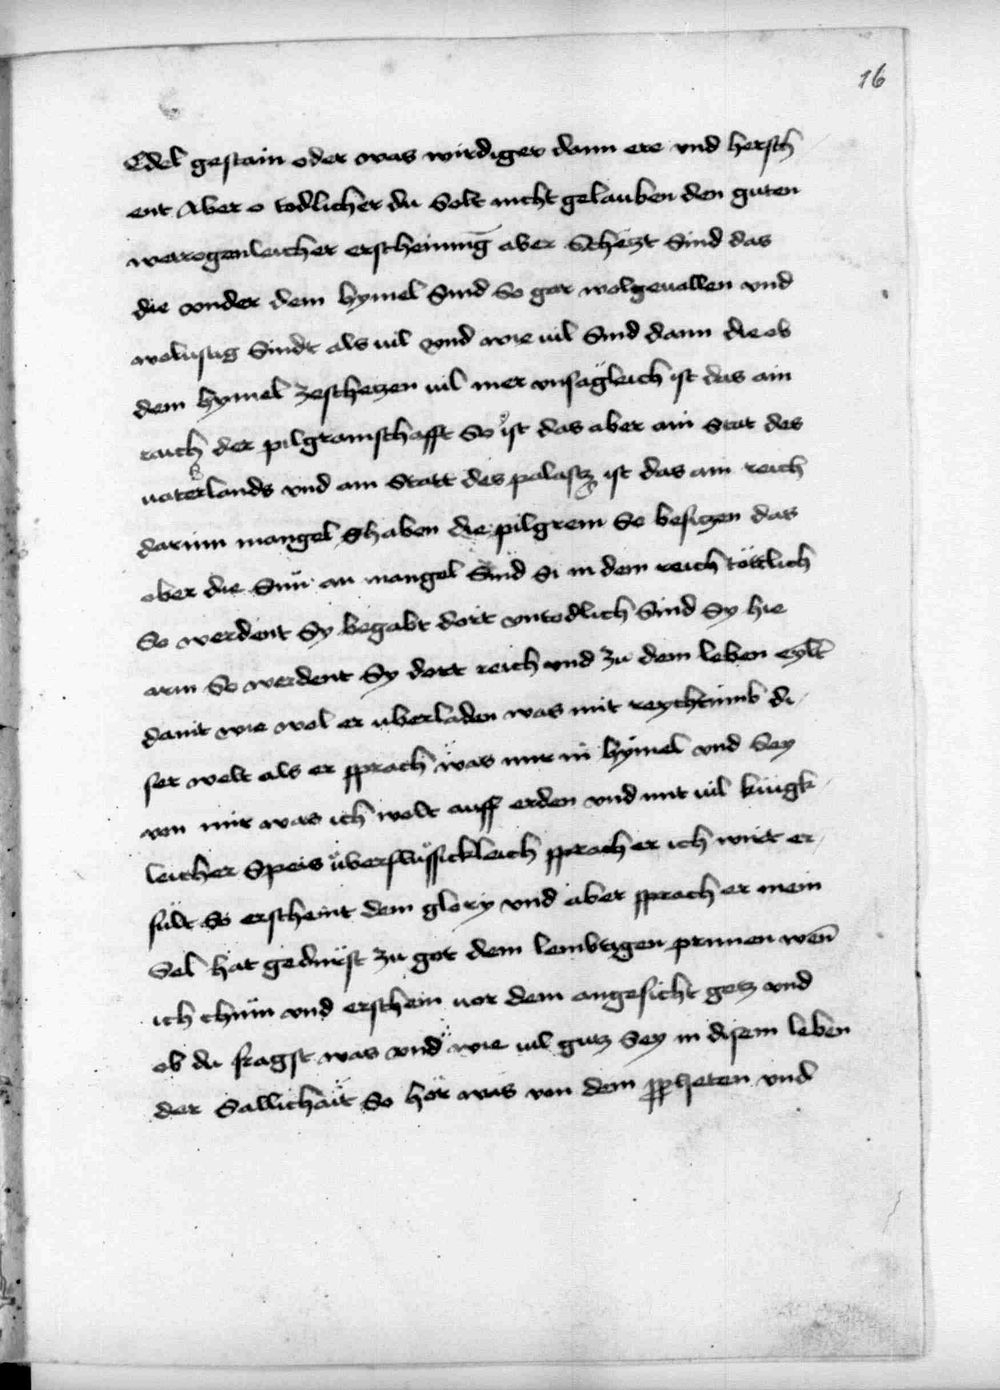 16
Edel gestain oder was wirdiger dann ere vnd hersch
ent Aber o todlicher du Solt nicht gelauben den guten
erscheinung aber Schetzt Sind das
die vnder dem hymel Sind So gar wolgeuallen vnd
wolustig Sindt als uil vnd wie uil Sind dann die ob
dem hymel zeschetzen uil mer vnsägleich ist das ain
raich der pilgramschafft So ist das aber ain Stat des
uaterlands vnd am Statt des palastz ist das ain reich
darinn mangel haben die pilgrem So besitzen das
aber die Sun an mangel Sind Si in dem reich töttlich
So werdent Sy begabt dort vntodlich Sind Sy hie
arm So werdent Sy dort reich vnd zu dem leben eylt
dauit wie wol er uberladen was mit reychtumb di
ser welt als er sprach was mir in hymel vnd Sey
von mir was ich wolt auff erden vnd mit uil kungk
leicher Speis überflüssickleich sprach er ich wirt er
fült So erscheint dein glory vnd aber sprach er mein
Sel hat gedurst zu got dem lembtigen prunnen wen
ich chum vnd erschein uor dem angesicht gotz vnd
ob du fragst was vnd wie uil gutz Sey in disem leben
der Sällichait So hör was von dem propheten vnd